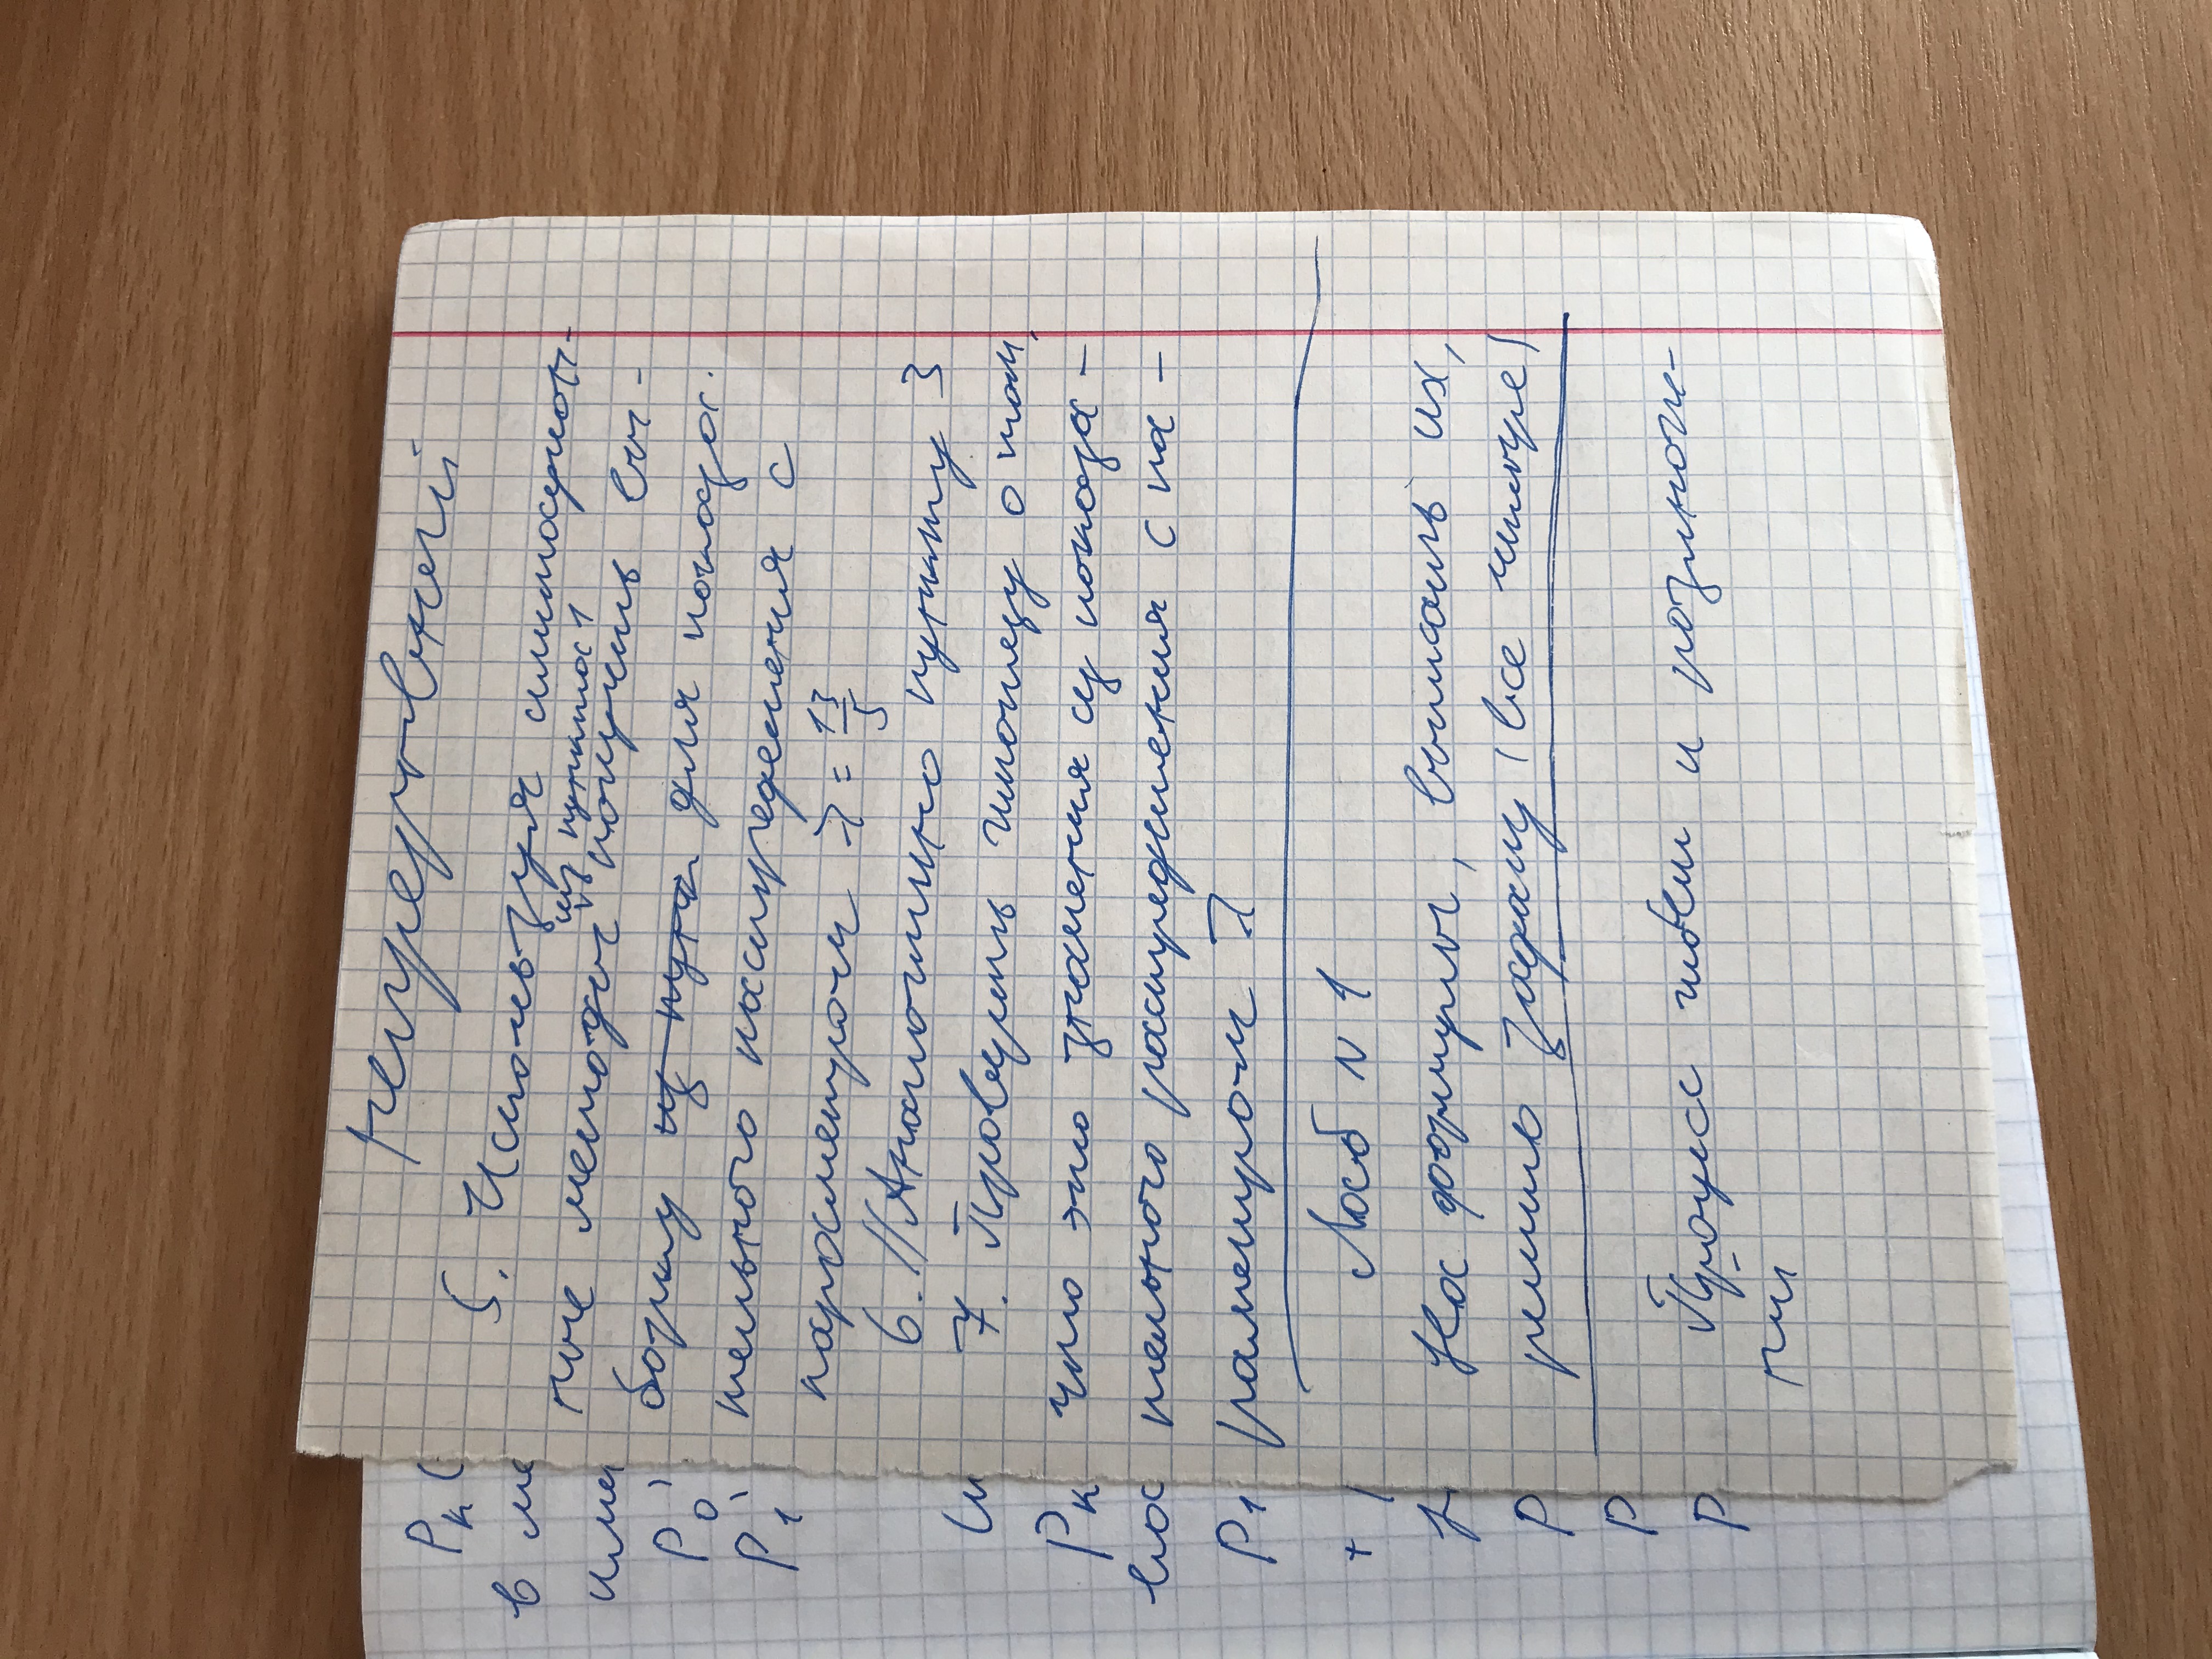 непрерывной
5. Используя
ные методы из пункта 1 получить вы-
борку из пунк для показа-
тельного распределения с
параметром λ = 13/5
6. // Аналогично пункту 3
7. Проверить гипотезу о том,
что это значения из показа-
тельного распределения с па-
раметром λ
Лаб N 1
На формулы, выписать их,
решить задачу (все четыре)
Процесс гибели и размноже-
ний
Pк (
в ме
има
P0'
P1'
Pк
P1
+
P
P
P